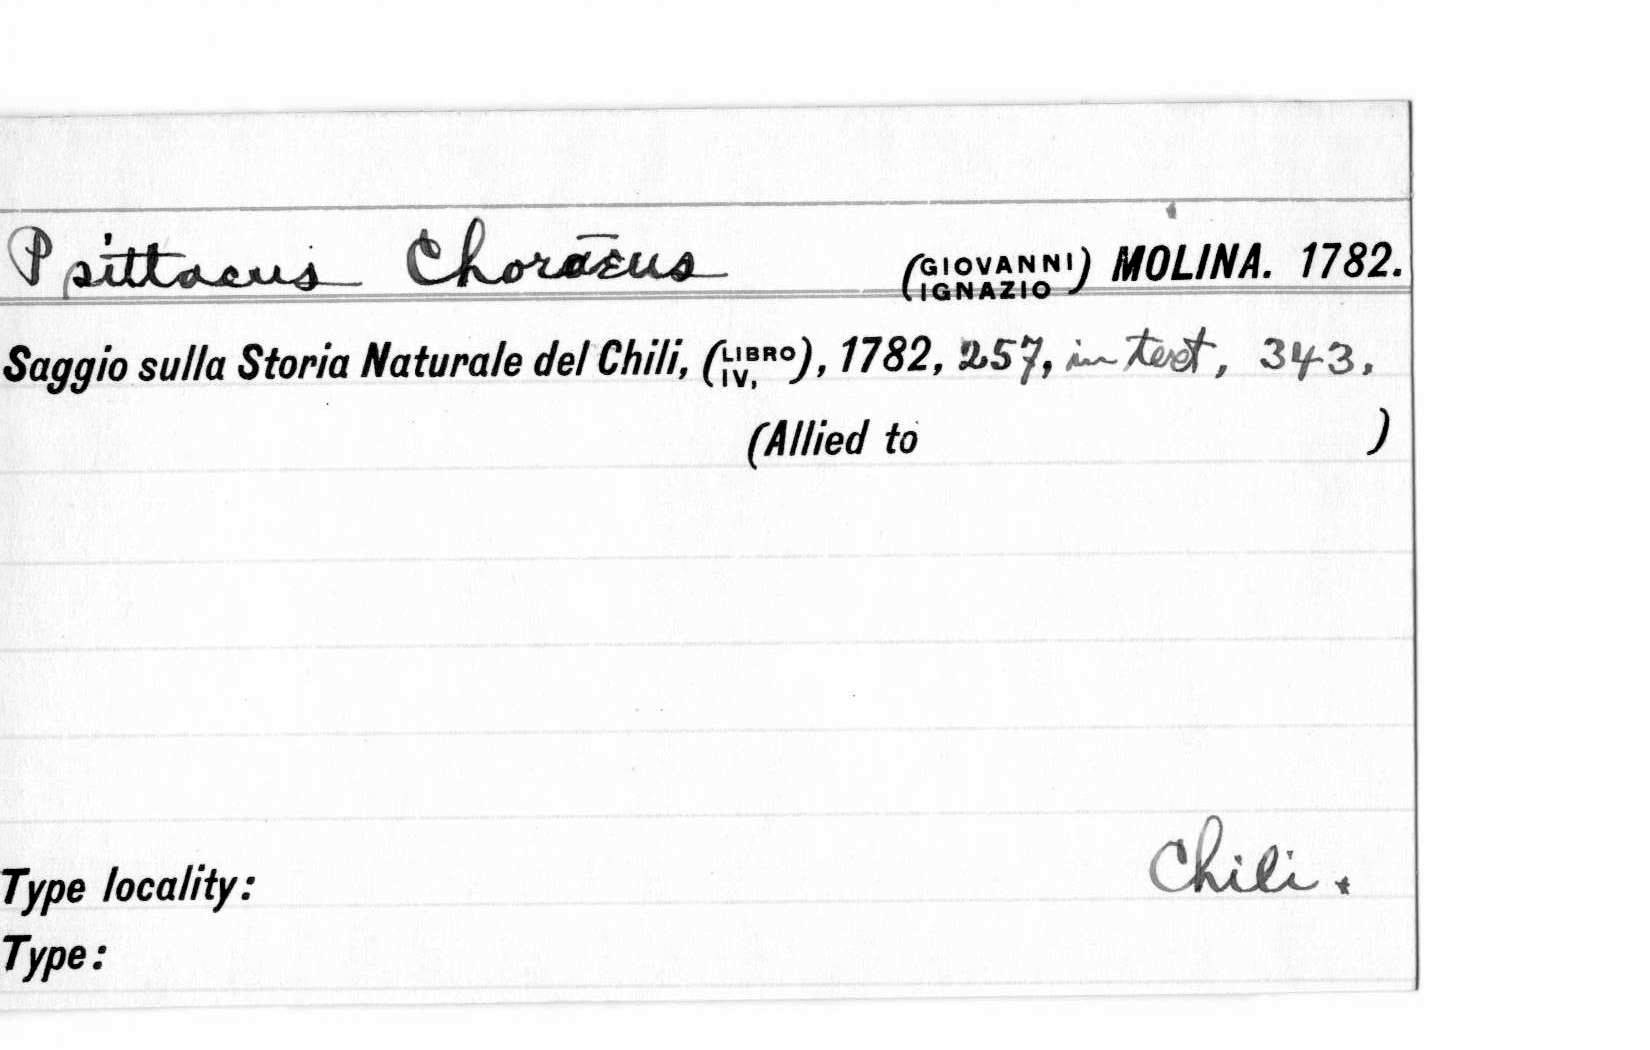 Psittacus Choraeus (GIOVANNI IGNAZIO) MOLINA. 1782.
Saggio sulla Storia Naturale del Chili, (LIBRO IV,), 1782, 257, in text, 343.
(Allied to )
Type locality: Chili.
Type: